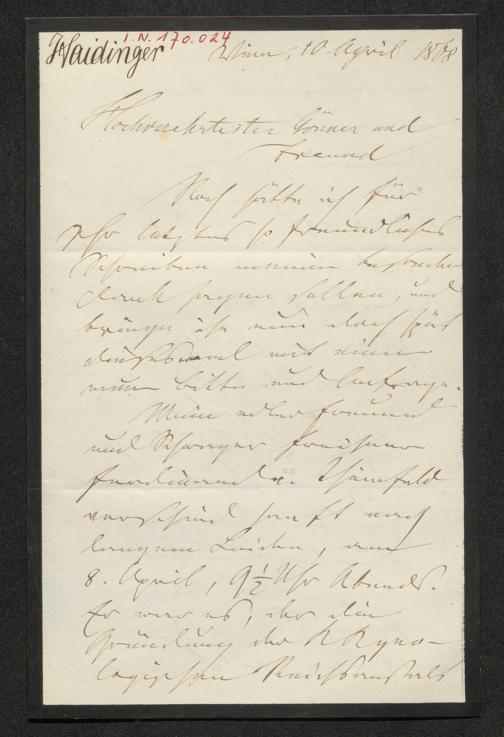 Haidinger I. N. 170.024
Wien, 10. April 1868
Hochverehrtester Gönner und
Freund
Noch hätte ich für
Ihr letztes so freundliches
Schreiben meinen besten
Dank sagen sollen, und
bringe ihn nun doch spät
diessmal mit einer
neuen Bitte und Anfrage.
Mein edler Freund
und Schwager Freiherr
Ferdinand v. Thinnfeld
verschied sanft nach
langem Leiden, am
8. April, 9½ Uhr Abends.
Er war es, der die
Gründung der K K
logischen Reichsanstalt